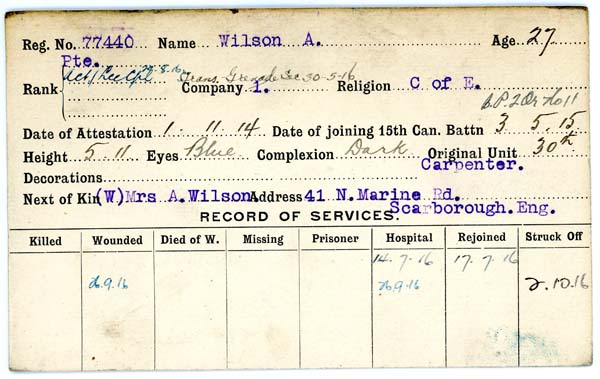 Reg. No. 77440 Name Wilson A. Age 27
Pte.
Rank Act/Lce Cpl 29-8-16 Trans. Grenade Sec 30-5-16
Company 1. Religion C of E.
Date of Attestation 1 11 14 Date of joining 15th Can. Battn 3 5 15
Height 5 11 Eyes Blue Complexion Dark Original Unit 30th
Decorations Carpenter.
Next of Kin (W) Mrs A. Wilson Address 41 N. Marine Rd.
Scarborough. Eng.
RECORD OF SERVICES.
Killed Wounded Died of W. Missing Prisoner Hospital Rejoined Struck Off
14.7.16 17.7.16
26.9.16 26.9.16 2.10.16